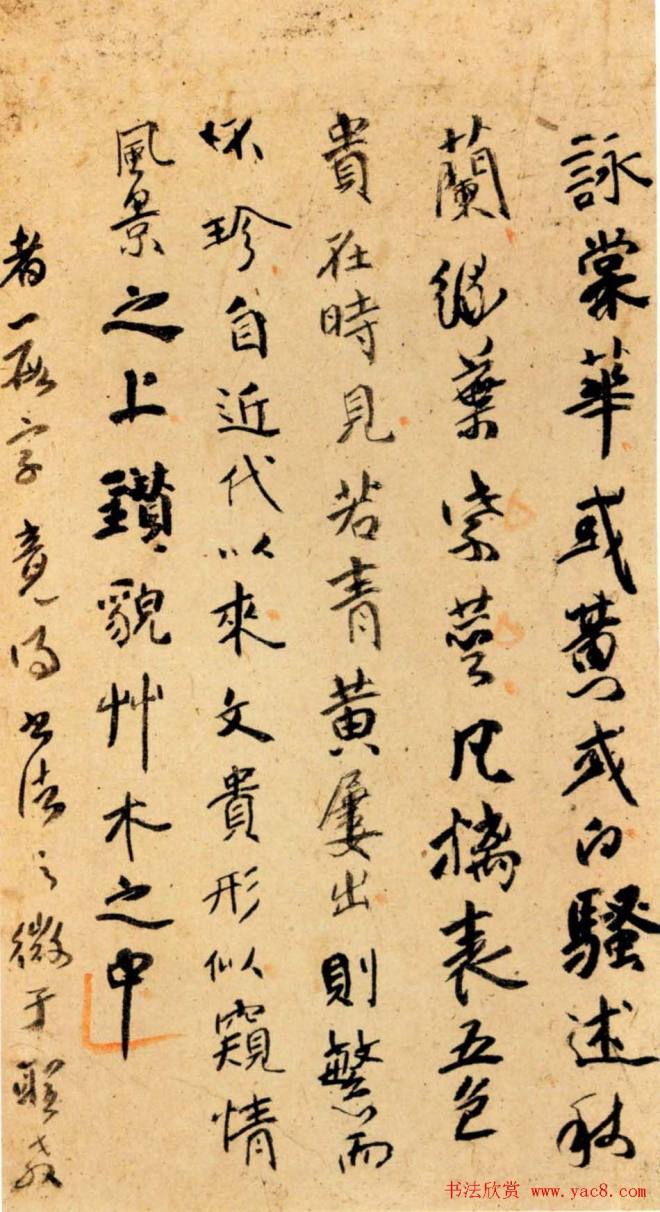 詠棠華或黃或白騷述秋
蘭綠葉紫莖凡摛表五色
貴在時見若青黃屢出則繁而
不珍自近代以來文貴形似窺情
風景之上鑽貌艸木之中
者一字竟得書法之微于聖教
书法欣赏 www.yac8.com